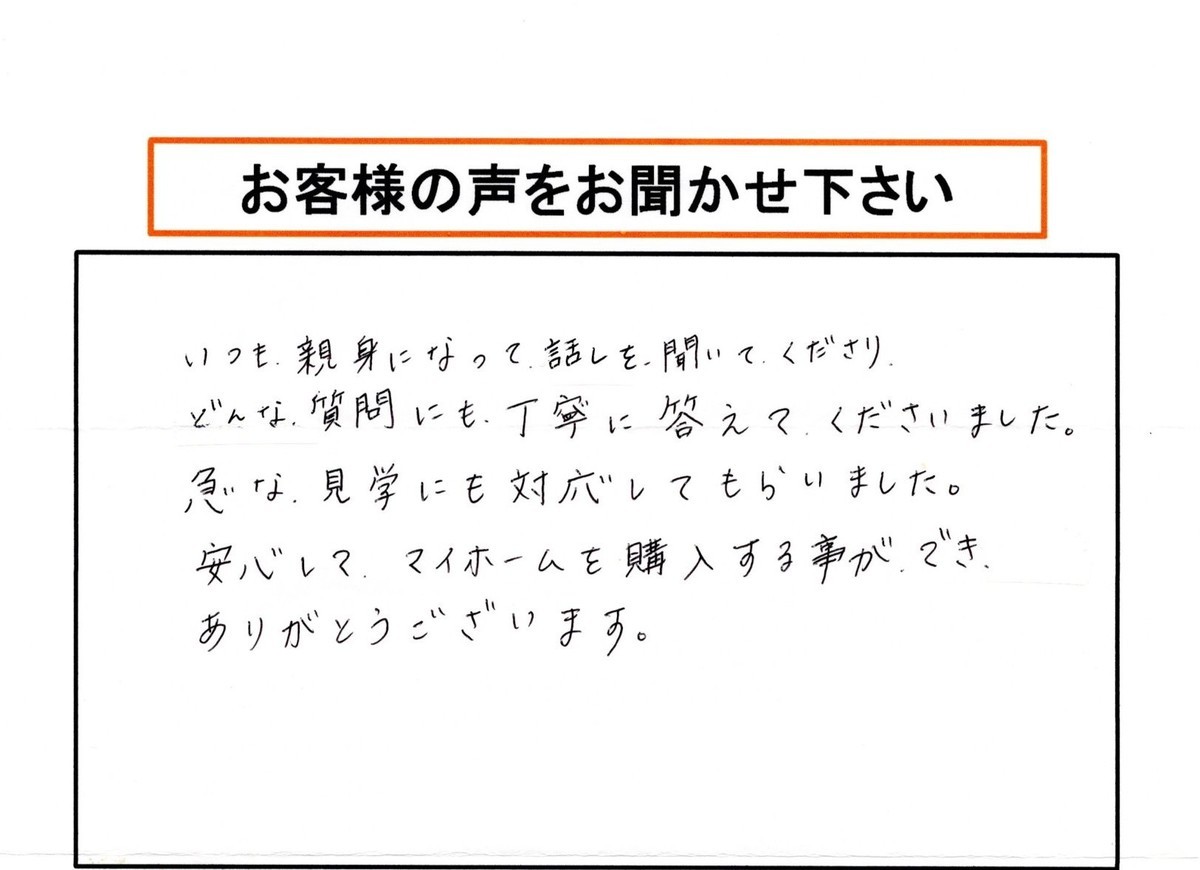 お客様の声をお聞かせ下さい
いつも、親身になって、話しを、聞いて、くださり、
どんな、質問にも、丁寧に答えて、くださいました。
急な、見学にも対応してもらいました。
安心して、マイホームを購入する事が、でき、
ありがとうございます。